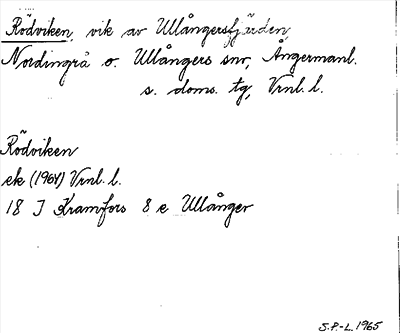 Rödviken, vik av Ullångersfjärden,
Nordingrå o. Ullångers snr, Ångermanl.
s. doms. tg, Vrnl. l.
Rödviken
ek (1964) Vrnl. l.
18 I Kramfors 8 e Ullånger
S.P.-L. 1965